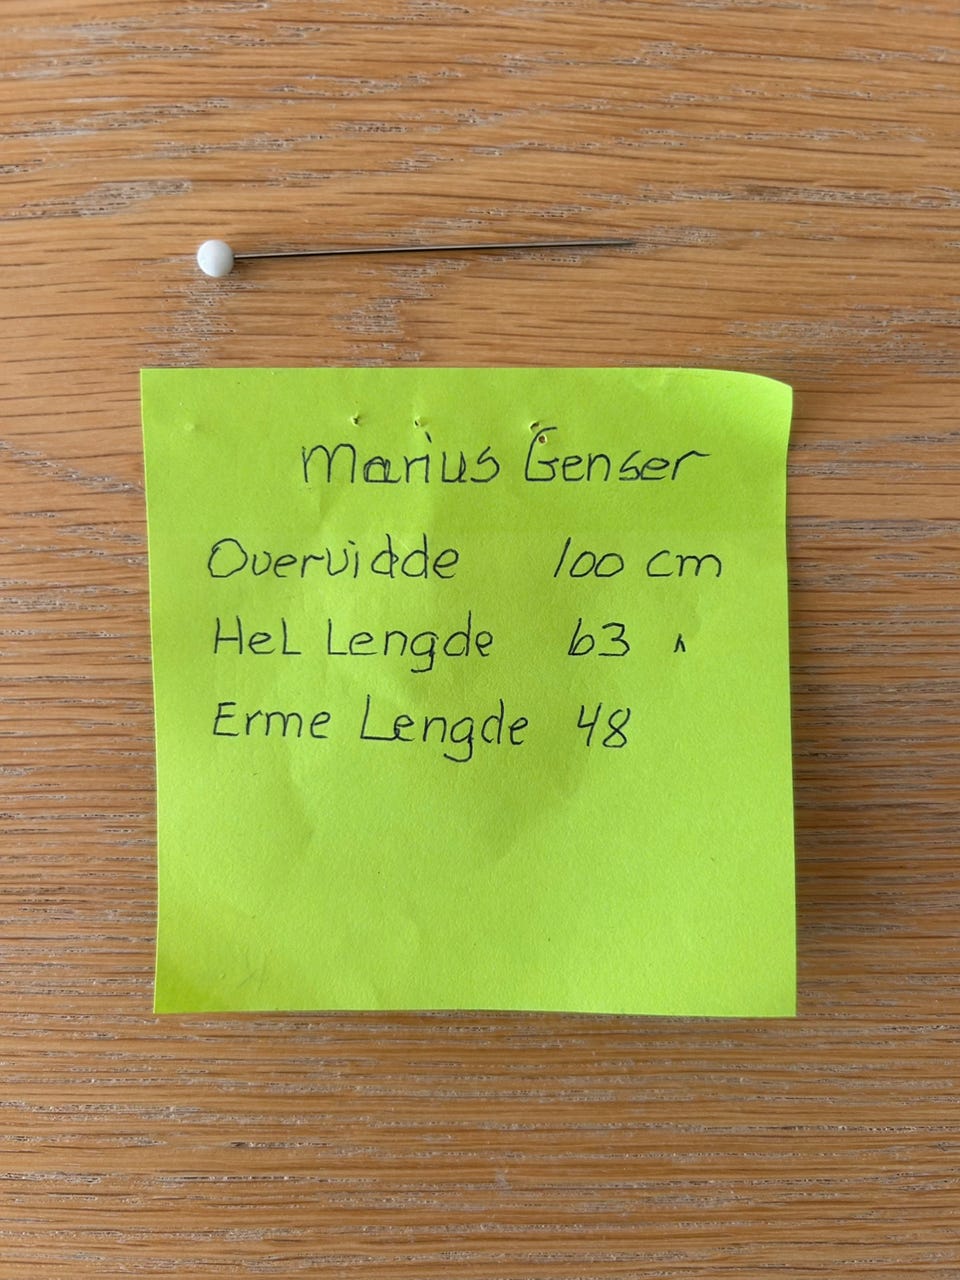 Marius Genser
Overvidde 100 cm
Hel Lengde 63 "
Erme Lengde 48